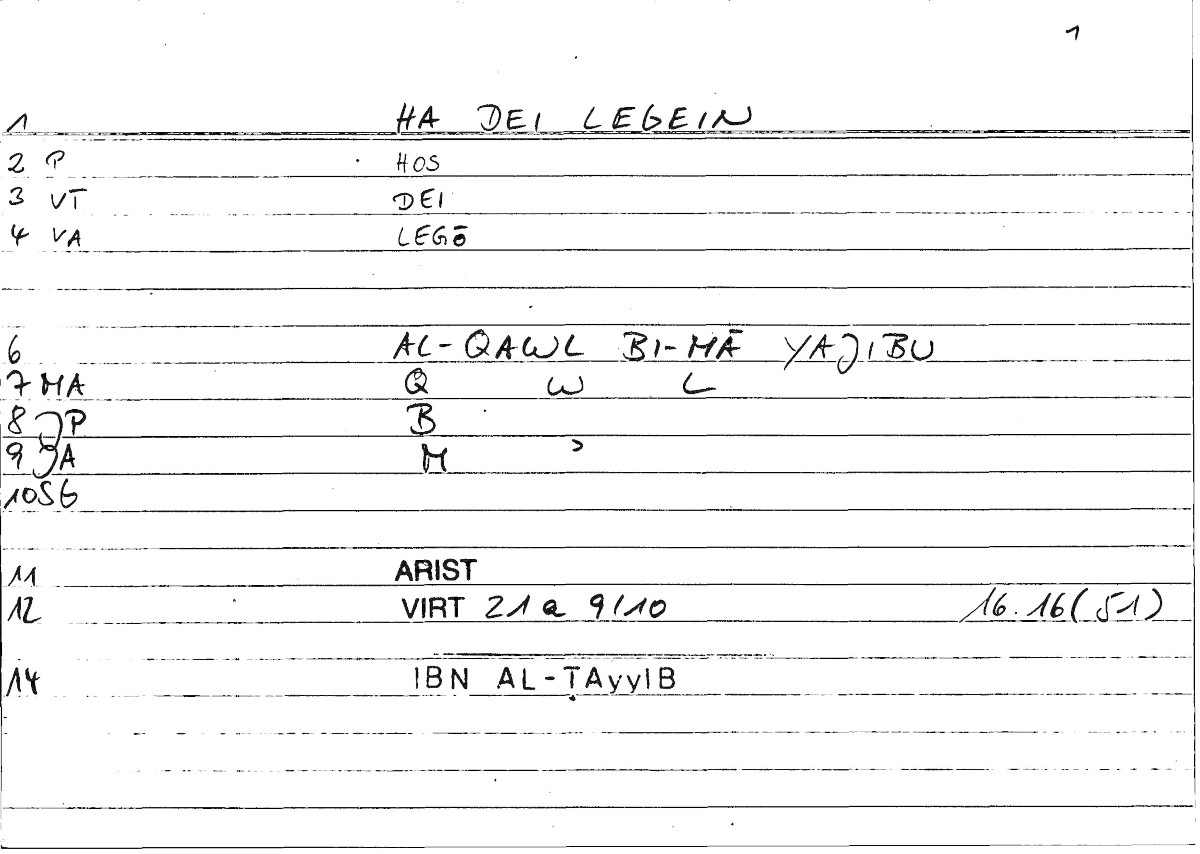 1
1 HA DEI LEGEIN
2 P HOS
3 VT DEI
4 VA LEGŌ
6 AL-QAWL BI-MĀ YAJIBU
7 MA Q W L
8 JP B
9 JA M ʾ
10 SG
11 ARIST
12 VIRT 21a 9/10 16.16(51)
14 IBN AL-ṬAyyIB